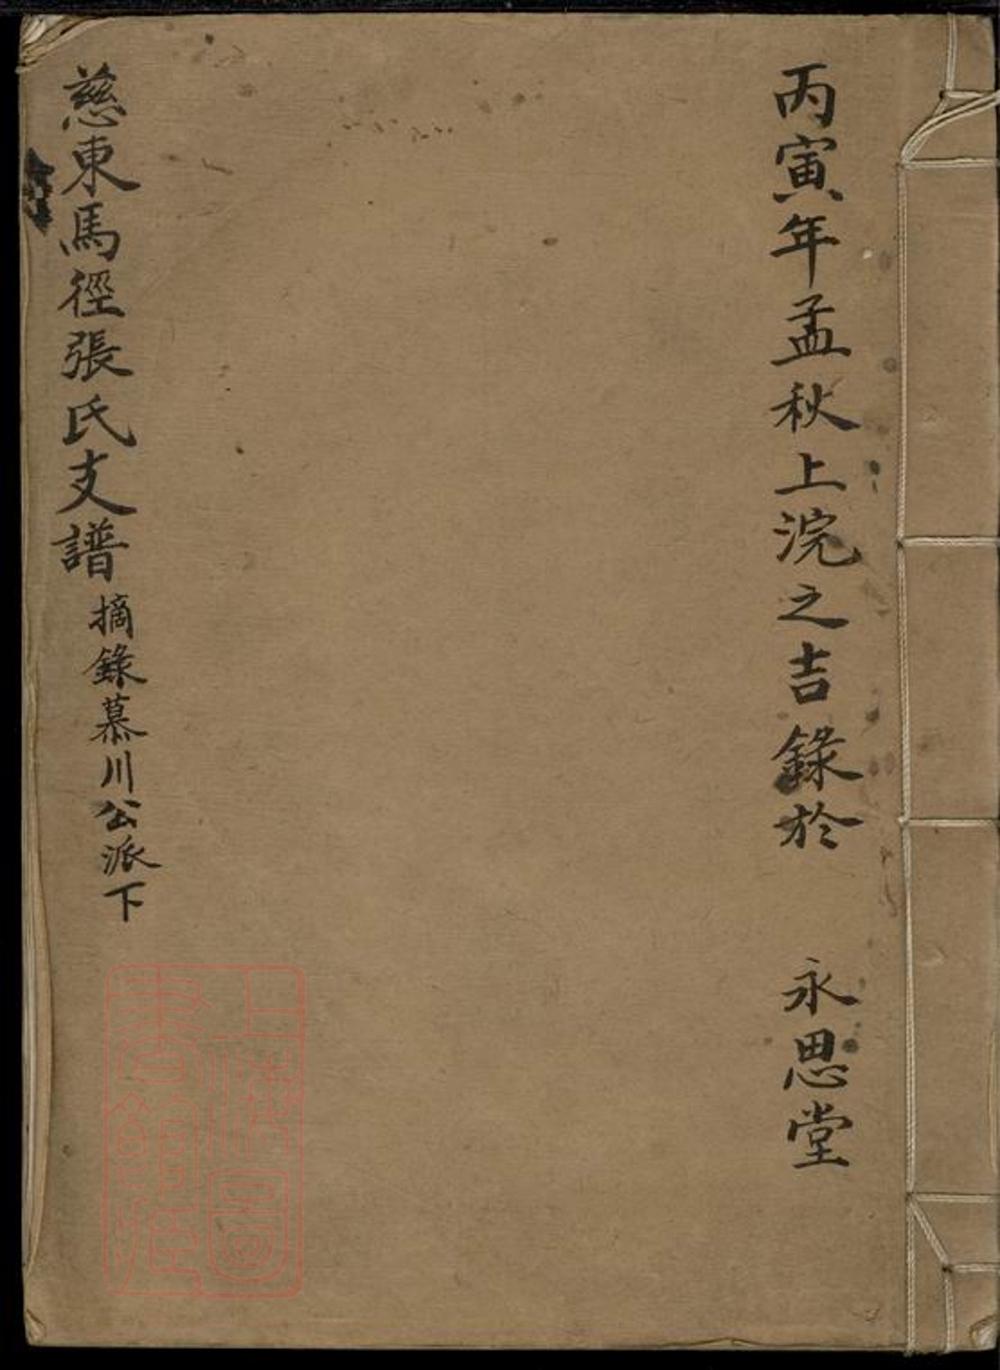 丙寅年孟秋上浣之吉錄於 永思堂
慈東馬徑張氏支譜 摘錄慕川公派下
上海圖
書館藏